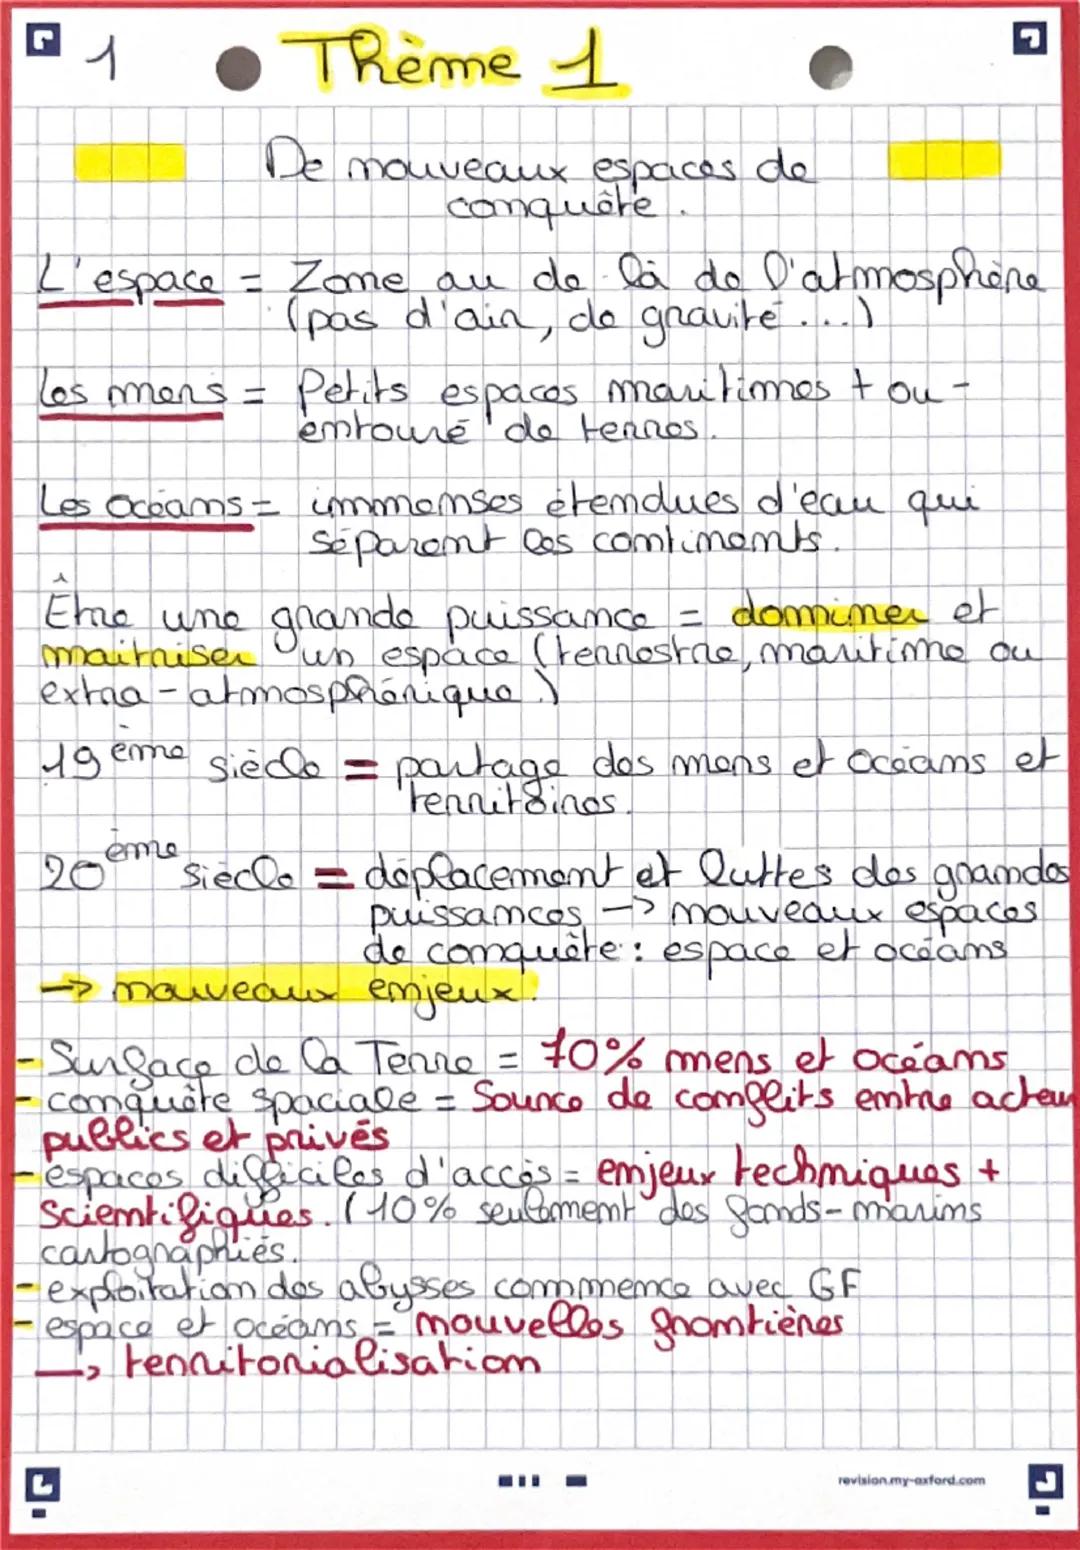 1 Thème 1
De nouveaux espaces de
conquête.
L'espace = Zone au de-là de l'atmosphère
(pas d'air, de gravité...)
les mers = Petits espaces maritimes + ou -
entouré de terres.
Les Océans = immenses étendues d'eau qui
séparent les continents.
Être une grande puissance = dominer et
maitriser un espace (terrestre, maritime ou
extra-atmosphérique.)
19ème siècle = partage des mers et océans et
territoires.
20ème siècle = déplacement et luttes des grandes
puissances -> nouveaux espaces
de conquête : espace et océans
-> nouveaux enjeux.
- Surface de la Terre = 70% mers et océans
- conquête spaciale = Source de conflits entre acteurs
publics et privés
- espaces difficiles d'accès = enjeux techniques +
scientifiques. (10% seulement des fonds-marins
cartographiés.
- exploitation des abysses commence avec GF
- espace et océans = nouvelles frontières
-> territorialisation
revision.my-oxford.com